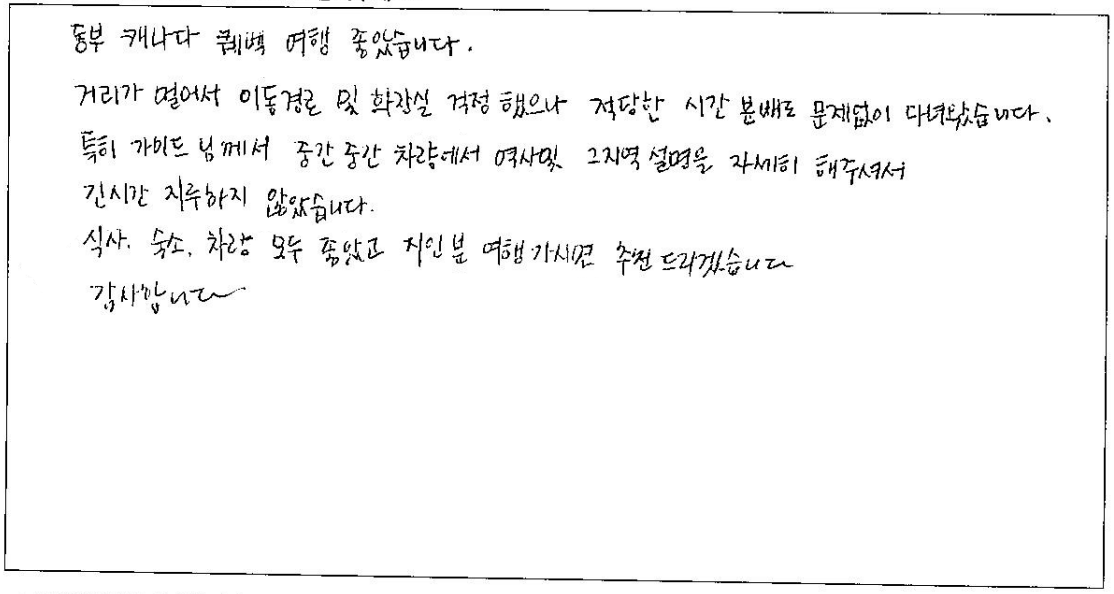 동부 캐나다 퀘벡 여행 좋았습니다.
거리가 멀어서 이동경로 및 화장실 걱정 했으나 적당한 시간 분배로 문제없이 다녀왔습니다.
특히 가이드 님께서 중간 중간 차량에서 역사및 그지역 설명을 자세히 해주셔서
긴시간 지루하지 않았습니다.
식사, 숙소, 차량 모두 좋았고 지인분 여행가시면 추천 드리겠습니다
감사합니다